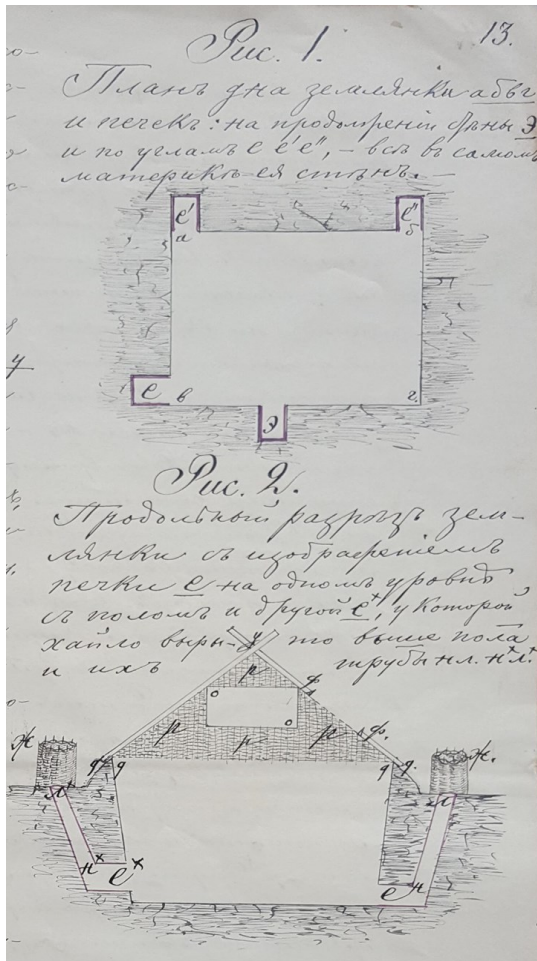 13.
Рис. 1.
Планъ дна землянки абвг
и печекъ: на продолженіи стѣны Э
и по угламъ е е' е", – всѣ въ самомъ
материкѣ ея стѣнъ. –
е'
е"
а
б
е
в
г.
Э
Рис. 2.
Продольный разрѣзъ зем-
лянки съ изображеніемъ
печки е на одномъ уровнѣ
съ поломъ и другой е+, у которой
хайло выры- у то выше пола
и ихъ трубы нл. н+л+.
р
ф
о
о
р
р
р
ф.
Ж
Ж.
д
д
д
д.
л+
л
н+
е+
е
н